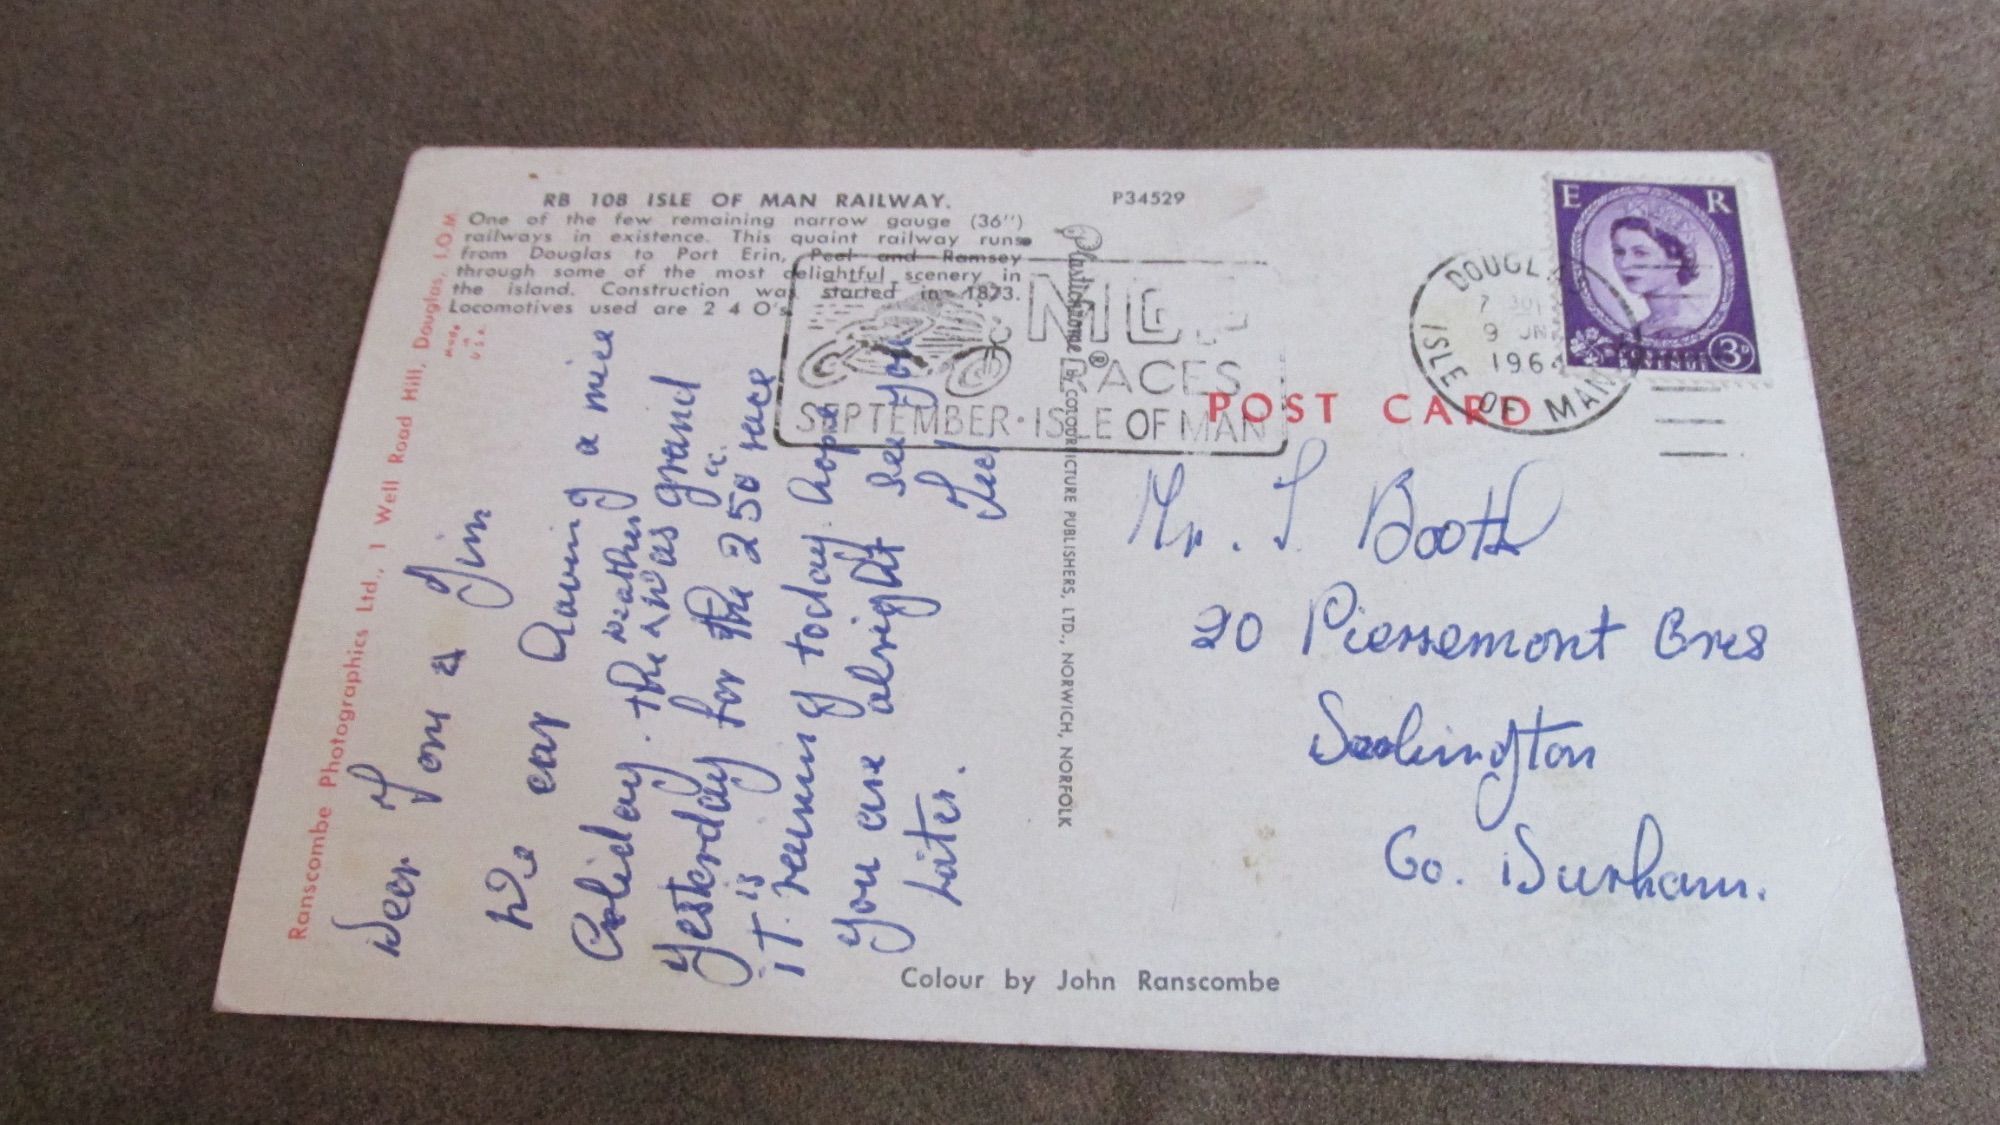 RB 108 ISLE OF MAN RAILWAY.
One of the few remaining narrow gauge (36")
railways in existence. This quaint railway runs
from Douglas to Port Erin, Peel and Ramsey
through some of the most delightful scenery in
the island. Construction was started in 1873.
Locomotives used are 2 4 O's
P34529
Ranscombe Photographics Ltd., 1 Well Road Hill, Douglas, I.O.M.
Made
in
U.S.A.
Dear Tom & Jim
We ear having a nice
holiday. the weather was grand
yesterday for the 250 race
iT is raining today. hope
you are alright see you
Later.
Plastichrome ® by COLOURPICTURE PUBLISHERS, LTD., NORWICH, NORFOLK
RACES
SEPTEMBER · ISLE OF MAN
DOUGL
9 JN
1964
ISLE OF MAN
E R
REVENUE
3D
POST CARD
Mr. T Booth
20 Pierremont Cres
Darlington
Co. Durham.
Colour by John Ranscombe